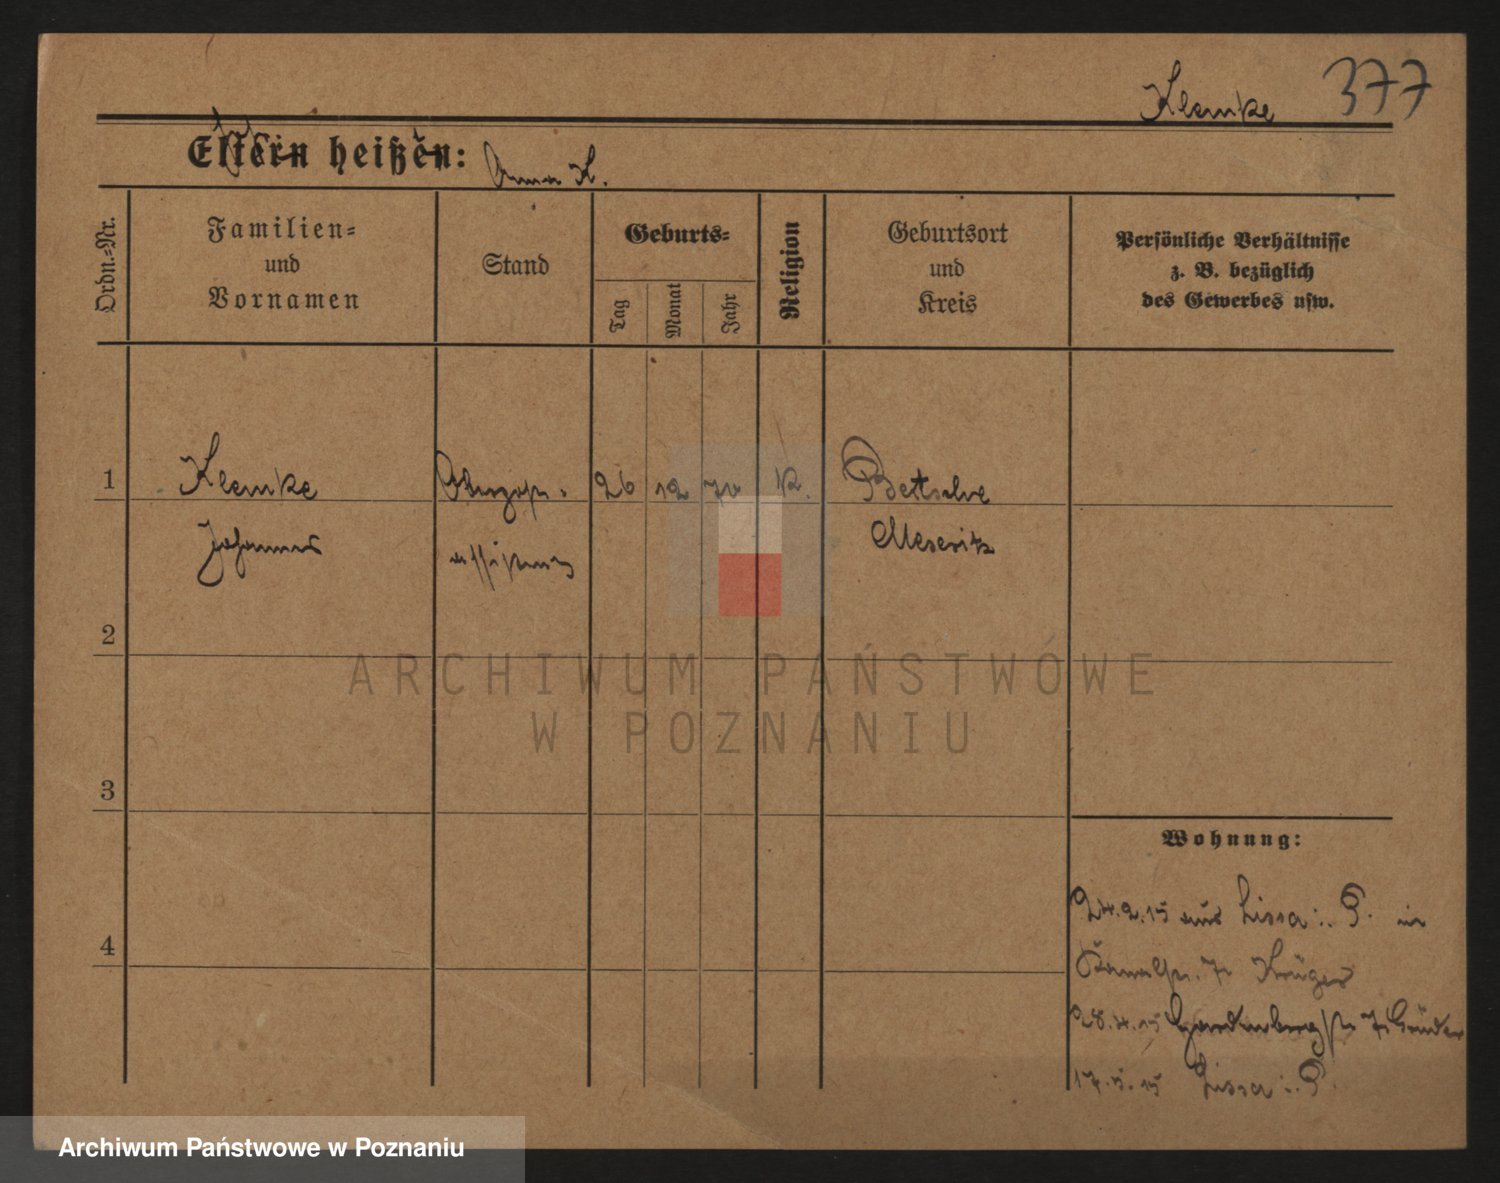 Klemke 377
Eltern heißen: Anna K.
Ordn.-Nr.
Familien-
und
Vornamen
Stand
Geburts-
Tag
Monat
Jahr
Religion
Geburtsort
und
Kreis
Persönliche Verhältnisse
z. B. bezüglich
des Gewerbes usw.
1 Klemke 26 12 K. Betsche
Johannes Meseritz
2
ARCHIWUM PAŃSTWOWE
W POZNANIU
3
Wohnung:
24.2.15 aus Lissa i. P. in
4
Kanalstr. 7 Krüger
28.4.15 Hardenbergstr 7
17.5.15 Lissa i. P.
Archiwum Państwowe w Poznaniu